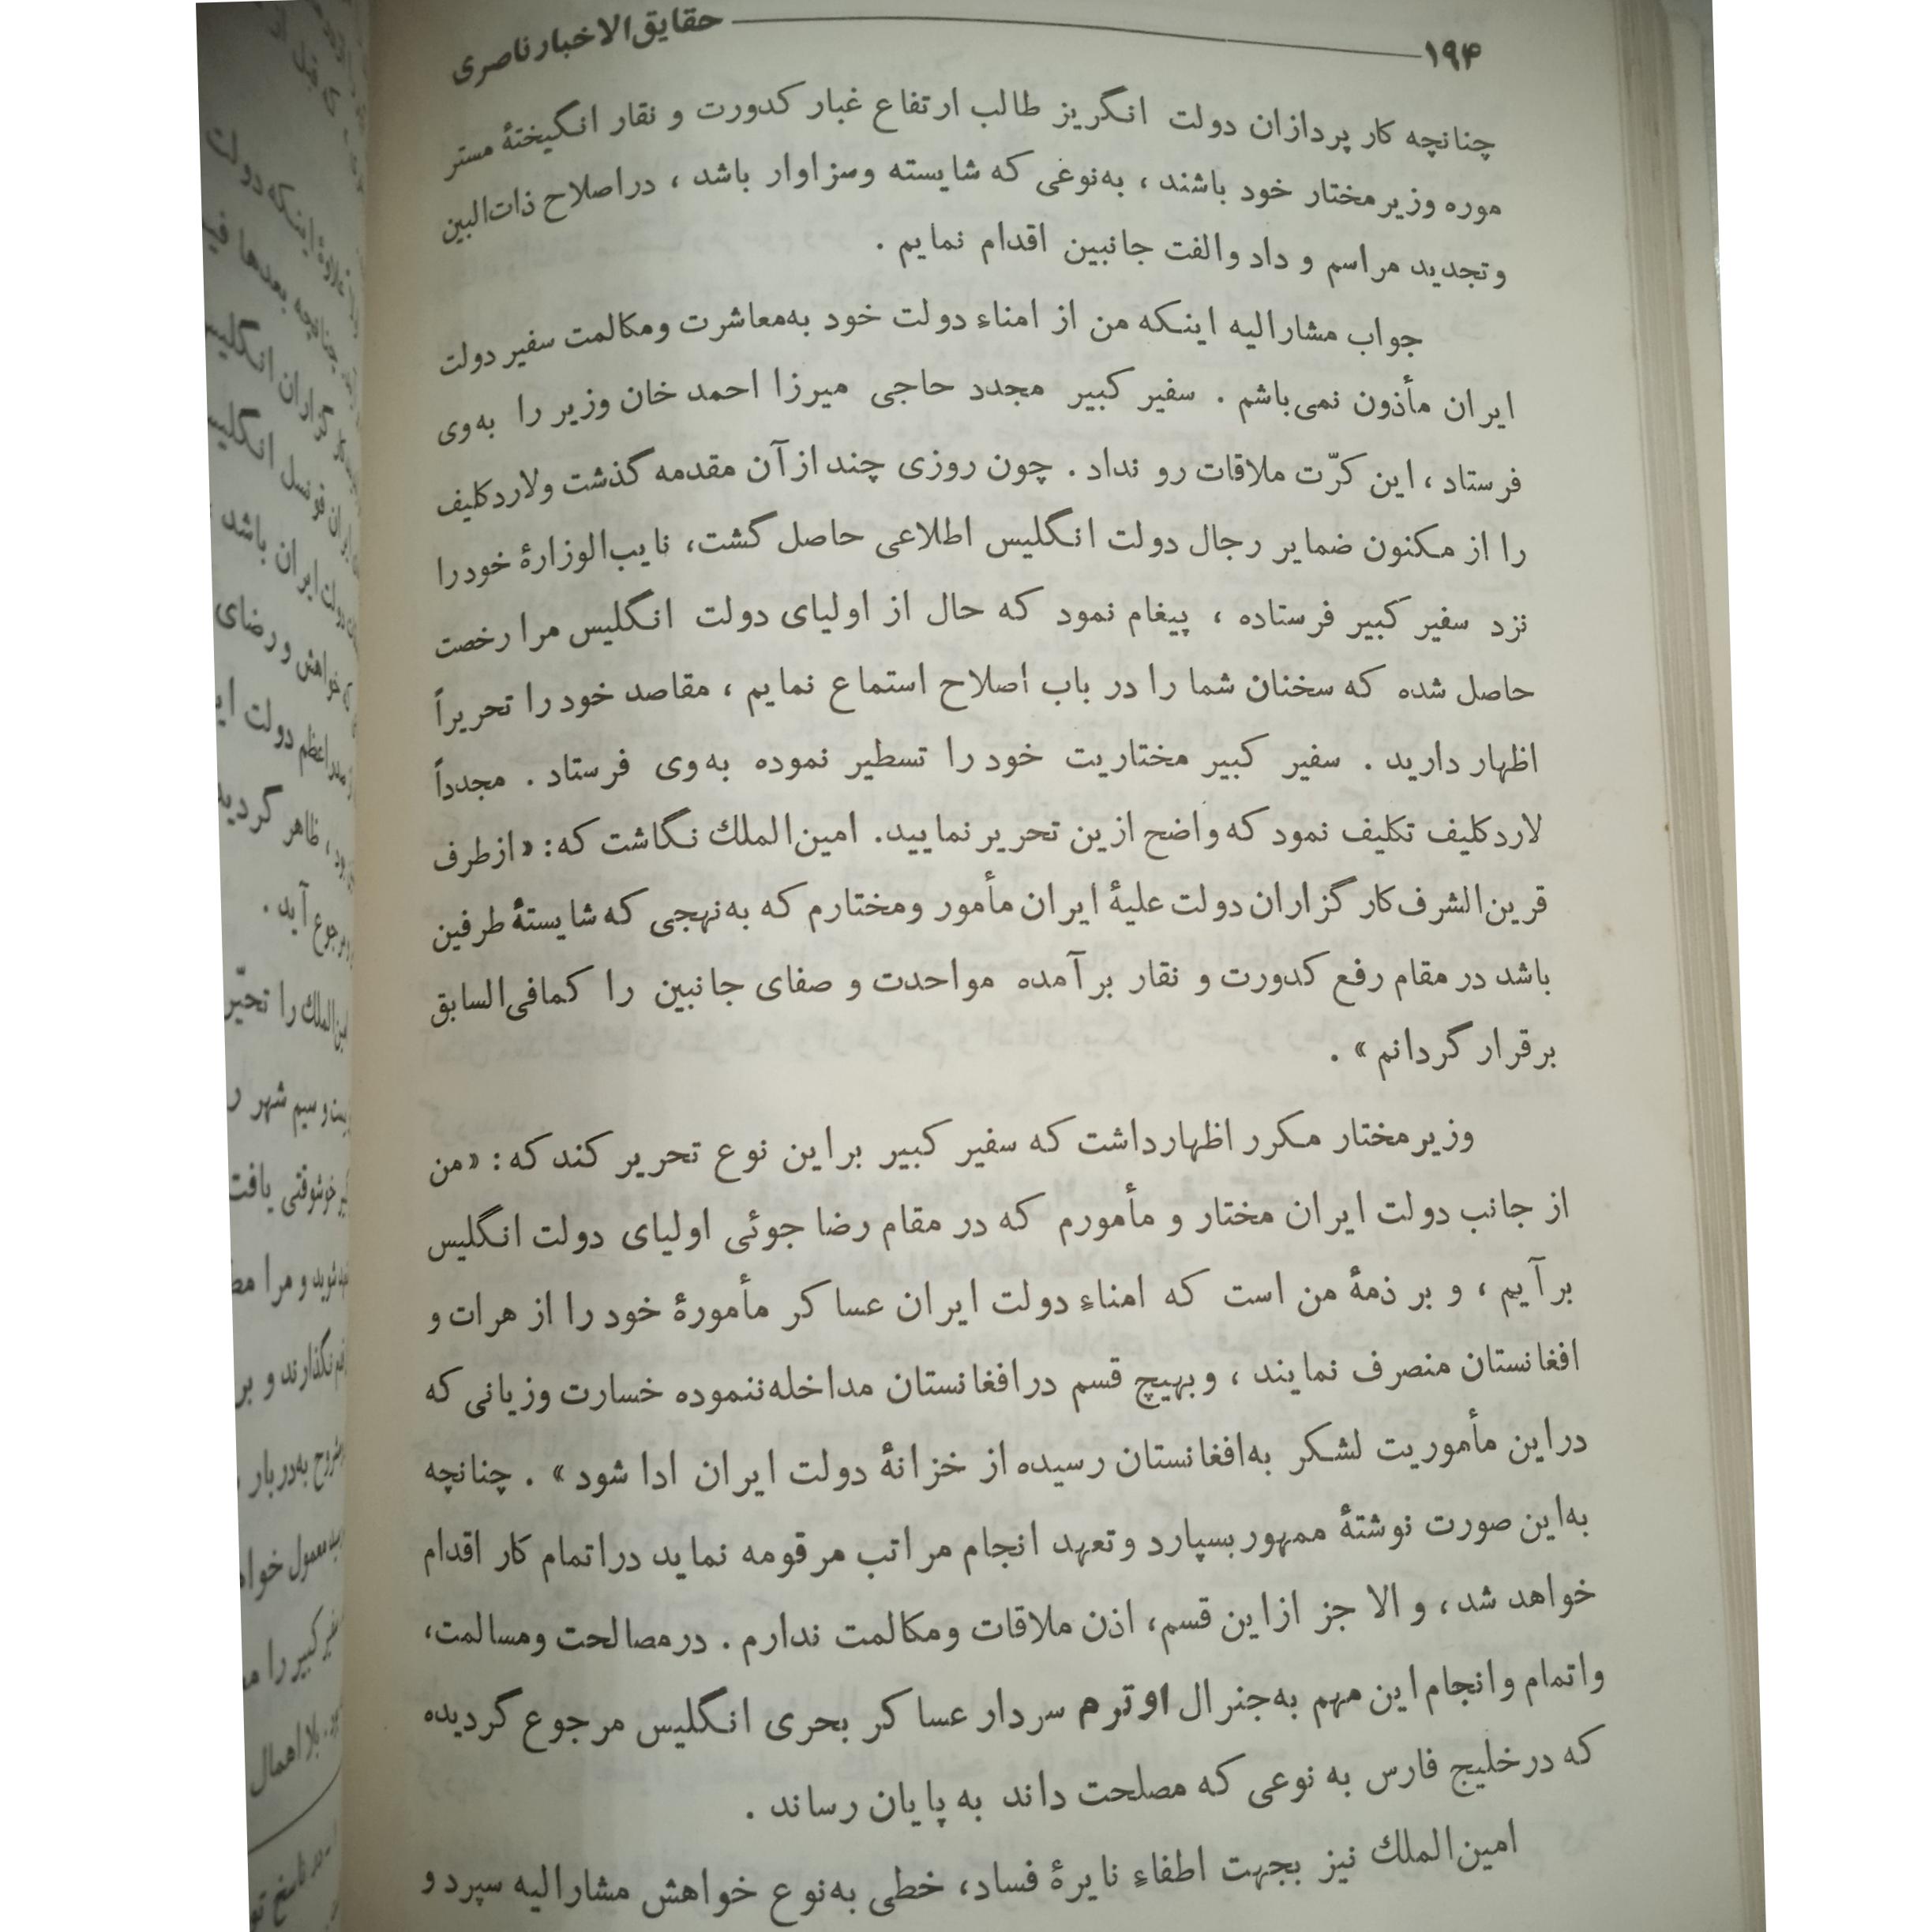 ۱۹۴ حقایق‌الاخبار ناصری
چنانچه کار پردازان دولت انگریز طالب ارتفاع غبار کدورت و نقار انگیختهٔ مستر
موره وزیر مختار خود باشند ، به‌نوعی که شایسته وسزاوار باشد ، دراصلاح ذات‌البین
وتجدید مراسم و داد والفت جانبین اقدام نمایم .
جواب مشارالیه اینکه من از امناء دولت خود به‌معاشرت ومکالمت سفیر دولت
ایران مأذون نمی‌باشم . سفیر کبیر مجدد حاجی میرزا احمد خان وزیر را به‌وی
فرستاد ، این کرّت ملاقات رو نداد . چون روزی چند ازآن مقدمه گذشت ولاردکلیف
را از مکنون ضمایر رجال دولت انگلیس اطلاعی حاصل گشت، نایب‌الوزارهٔ خودرا
نزد سفیر کبیر فرستاده ، پیغام نمود که حال از اولیای دولت انگلیس مرا رخصت
حاصل شده که سخنان شما را در باب اصلاح استماع نمایم ، مقاصد خود را تحریراً
اظهار دارید . سفیر کبیر مختاریت خود را تسطیر نموده به‌وی فرستاد . مجدداً
لاردکلیف تکلیف نمود که واضح ازین تحریر نمایید. امین‌الملك نگاشت که: «ازطرف
قرین‌الشرف کار گزاران دولت علیهٔ ایران مأمور ومختارم که به‌نهجی که شایستهٔ طرفین
باشد در مقام رفع کدورت و نقار برآمده مواحدت و صفای جانبین را کمافی‌السابق
برقرار گردانم » .
وزیر مختار مکرر اظهارداشت که سفیر کبیر براین نوع تحریر کند که: «من
از جانب دولت ایران مختار و مأمورم که در مقام رضا جوئی اولیای دولت انگلیس
برآیم ، و بر ذمهٔ من است که امناء دولت ایران عساکر مأمورهٔ خود را از هرات و
افغانستان منصرف نمایند ، وبهیچ قسم درافغانستان مداخله‌ننموده خسارت وزیانی که
دراین مأموریت لشکر به‌افغانستان رسیده از خزانهٔ دولت ایران ادا شود » . چنانچه
به‌این صورت نوشتهٔ ممهور بسپارد وتعهد انجام مراتب مرقومه نماید دراتمام کار اقدام
خواهد شد، و الا جز ازاین قسم، اذن ملاقات ومکالمت ندارم . درمصالحت ومسالمت،
واتمام وانجام این مهم به‌جنرال اوترم سردار عساکر بحری انگلیس مرجوع گردیده
که درخلیج فارس به نوعی که مصلحت داند به پایان رساند .
امین‌الملك نیز بجهت اطفاء نایرهٔ فساد، خطی به‌نوع خواهش مشارالیه سپرد و